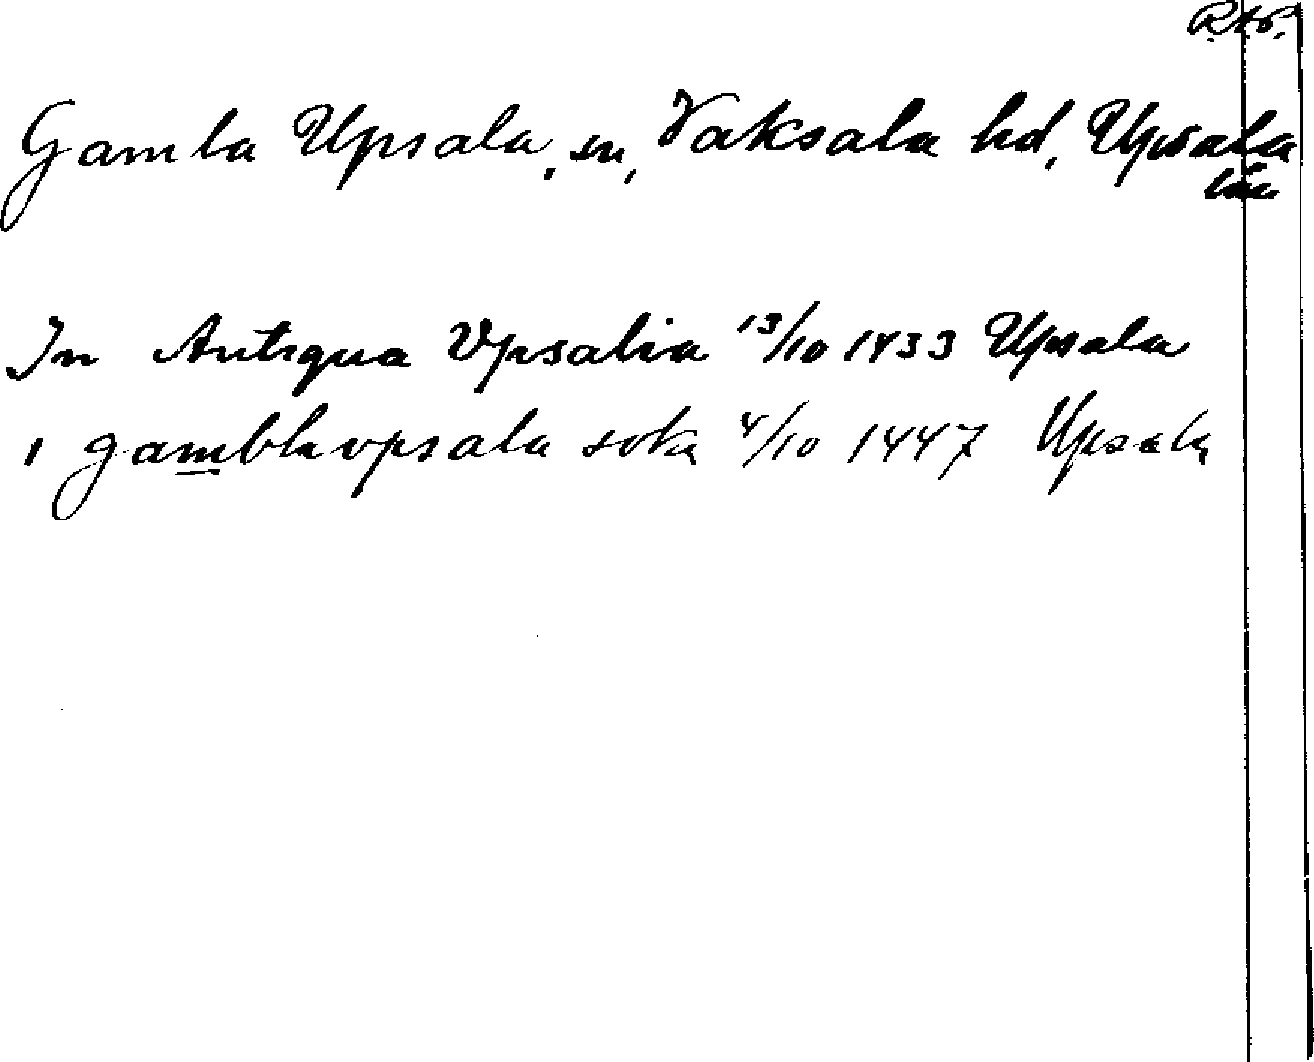 R.A.P.
Gamla Upsala, sn, Vaksala hd, Upsala
län
In Antiqua Vpsalia 13/10 1433 Upsala
i gamblavpsala sokn 4/10 1447 Upsala